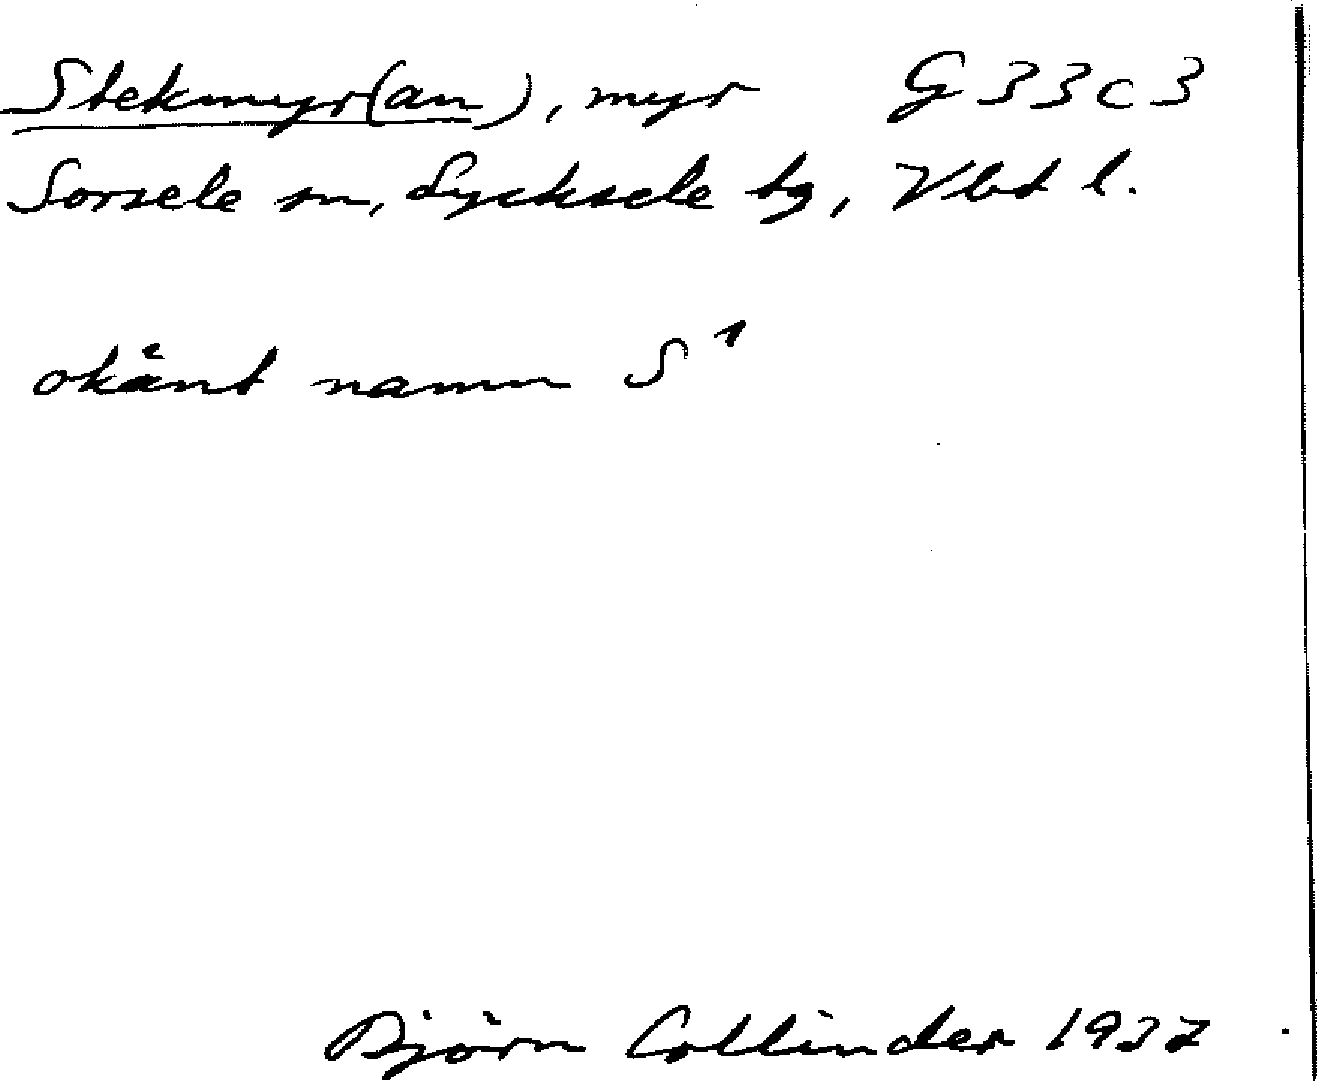 Stekmyr(an), myr G 33 c 3
Sorsele sn, Lycksele tg, Vbt l.
okänt namn S¹
Björn Collinder 1937